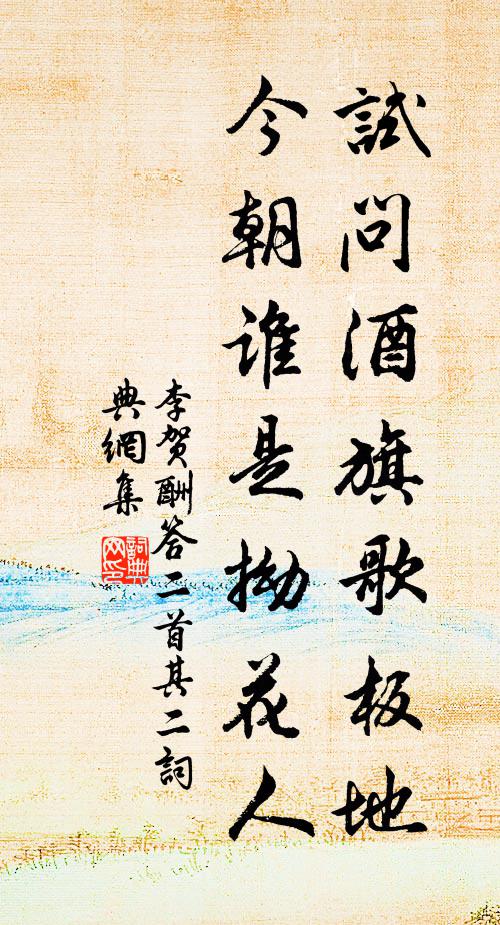 試問酒旗歌板地
今朝誰是拗花人
李賀酬答二首其二詞
典網集
詞典
网印